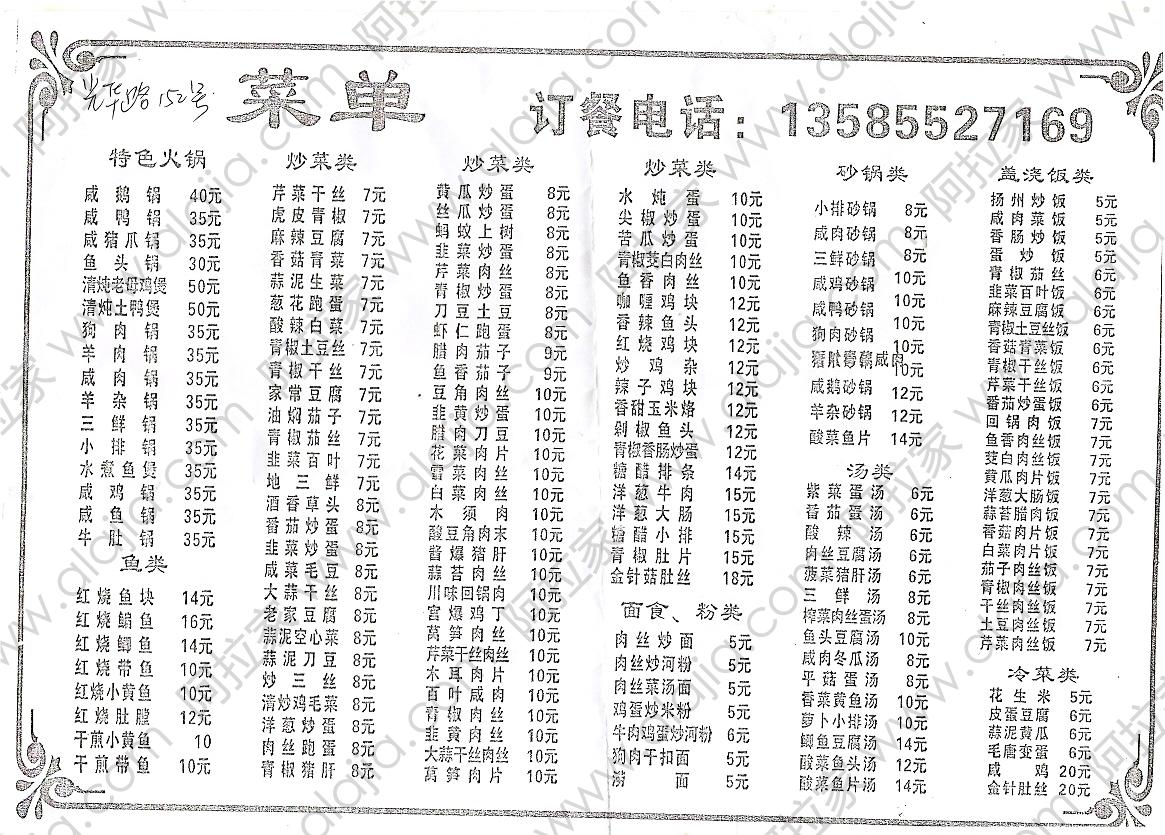 光华路152号
菜单
订餐电话：13585527169
特色火锅
咸鹅锅 40元
咸鸭锅 35元
咸猪爪锅 35元
鱼头锅 30元
清炖老母鸡煲 50元
清炖土鸭煲 50元
狗肉锅 35元
羊肉锅 35元
咸肉锅 35元
羊杂锅 35元
三鲜锅 35元
小排锅 35元
水煮鱼煲 35元
咸鸡锅 35元
咸鱼锅 35元
牛肚锅 35元
鱼类
红烧鱼块 14元
红烧鳊鱼 16元
红烧鲫鱼 14元
红烧带鱼 10元
红烧小黄鱼 10元
红烧肚膛 12元
干煎小黄鱼 10
干煎带鱼 10元
炒菜类
芹菜干丝 7元
虎皮青椒 7元
麻辣豆腐 7元
香菇青菜 7元
蒜泥生菜 7元
葱花跑蛋 7元
酸辣白菜 7元
青椒土豆丝 7元
青椒干丝 7元
家常豆腐 7元
油焖茄子 7元
青椒茄丝 7元
韭菜百叶 7元
地三鲜 7元
酒香草头 8元
番茄炒蛋 8元
韭菜炒蛋 8元
咸菜毛豆 8元
大蒜干丝 8元
老家豆腐 8元
蒜泥空心菜 8元
蒜泥刀豆 8元
炒三丝 8元
清炒鸡毛菜 8元
洋葱炒蛋 8元
肉丝跑蛋 8元
青椒猪肝 8元
炒菜类
黄瓜炒蛋 8元
丝瓜炒蛋 8元
蚂蚁上树 8元
韭菜炒蛋 8元
芹菜肉丝 8元
青椒炒蛋 8元
刀豆土豆 8元
虾仁跑蛋 8元
腊肉茄子 9元
鱼香茄子 9元
豆角肉丝 10元
韭黄炒蛋 10元
腊肉刀豆 10元
花菜肉片 10元
雪菜肉丝 10元
白菜肉丝 10元
木须肉 10元
酸豆角肉末 10元
酱爆猪肝 10元
蒜苔肉丝 10元
川味回锅肉 10元
宫爆鸡丁 10元
莴笋肉丝 10元
芹菜干丝肉丝 10元
木耳肉片 10元
百叶咸肉 10元
青椒肉丝 10元
韭黄肉丝 10元
大蒜干丝肉丝 10元
莴笋肉片 10元
炒菜类
水炖蛋 10元
尖椒炒蛋 10元
苦瓜炒蛋 10元
青椒茭白肉丝 10元
鱼香肉丝 10元
咖喱鸡块 12元
香辣鱼头 12元
红烧鸡块 12元
炒鸡杂 12元
辣子鸡块 12元
香甜玉米烙 12元
剁椒鱼头 12元
青椒香肠炒蛋 12元
糖醋排条 14元
洋葱牛肉 15元
洋葱大肠 15元
糖醋小排 15元
青椒肚片 15元
金针菇肚丝 18元
面食、粉类
肉丝炒面 5元
肉丝炒河粉 5元
肉丝菜汤面 5元
鸡蛋炒米粉 5元
牛肉鸡蛋炒河粉 6元
狗肉干扣面 5元
面 5元
砂锅类
小排砂锅 8元
咸肉砂锅 8元
三鲜砂锅 8元
咸鸡砂锅 10元
咸鸭砂锅 10元
狗肉砂锅 10元
咸肉 10元
咸鹅砂锅 12元
羊杂砂锅 12元
酸菜鱼片 14元
汤类
紫菜蛋汤 6元
番茄蛋汤 6元
酸辣汤 6元
肉丝豆腐汤 6元
菠菜猪肝汤 6元
三鲜汤 8元
榨菜肉丝蛋汤 8元
鱼头豆腐汤 10元
咸肉冬瓜汤 8元
平菇蛋汤 8元
香菜黄鱼汤 10元
萝卜小排汤 10元
鲫鱼豆腐汤 14元
酸菜鱼头汤 12元
酸菜鱼片汤 14元
盖浇饭类
扬州炒饭 5元
咸肉菜饭 5元
香肠炒饭 5元
蛋炒饭 5元
青椒茄丝 6元
韭菜百叶饭 6元
麻辣豆腐饭 6元
青椒土豆丝饭 6元
香菇青菜饭 6元
青椒干丝饭 6元
芹菜干丝饭 6元
番茄炒蛋饭 6元
回锅肉饭 7元
鱼香肉丝饭 7元
茭白肉丝饭 7元
黄瓜肉片饭 7元
洋葱大肠饭 7元
蒜苔腊肉饭 7元
香菇肉片饭 7元
白菜肉片饭 7元
茄子肉丝饭 7元
青椒肉丝饭 7元
干丝肉丝饭 7元
土豆肉丝饭 7元
芹菜肉丝饭 7元
冷菜类
花生米 5元
皮蛋豆腐 6元
蒜泥黄瓜 6元
毛唐变蛋 6元
咸鸡 20元
金针肚丝 20元
阿拉家 www.alajia.com